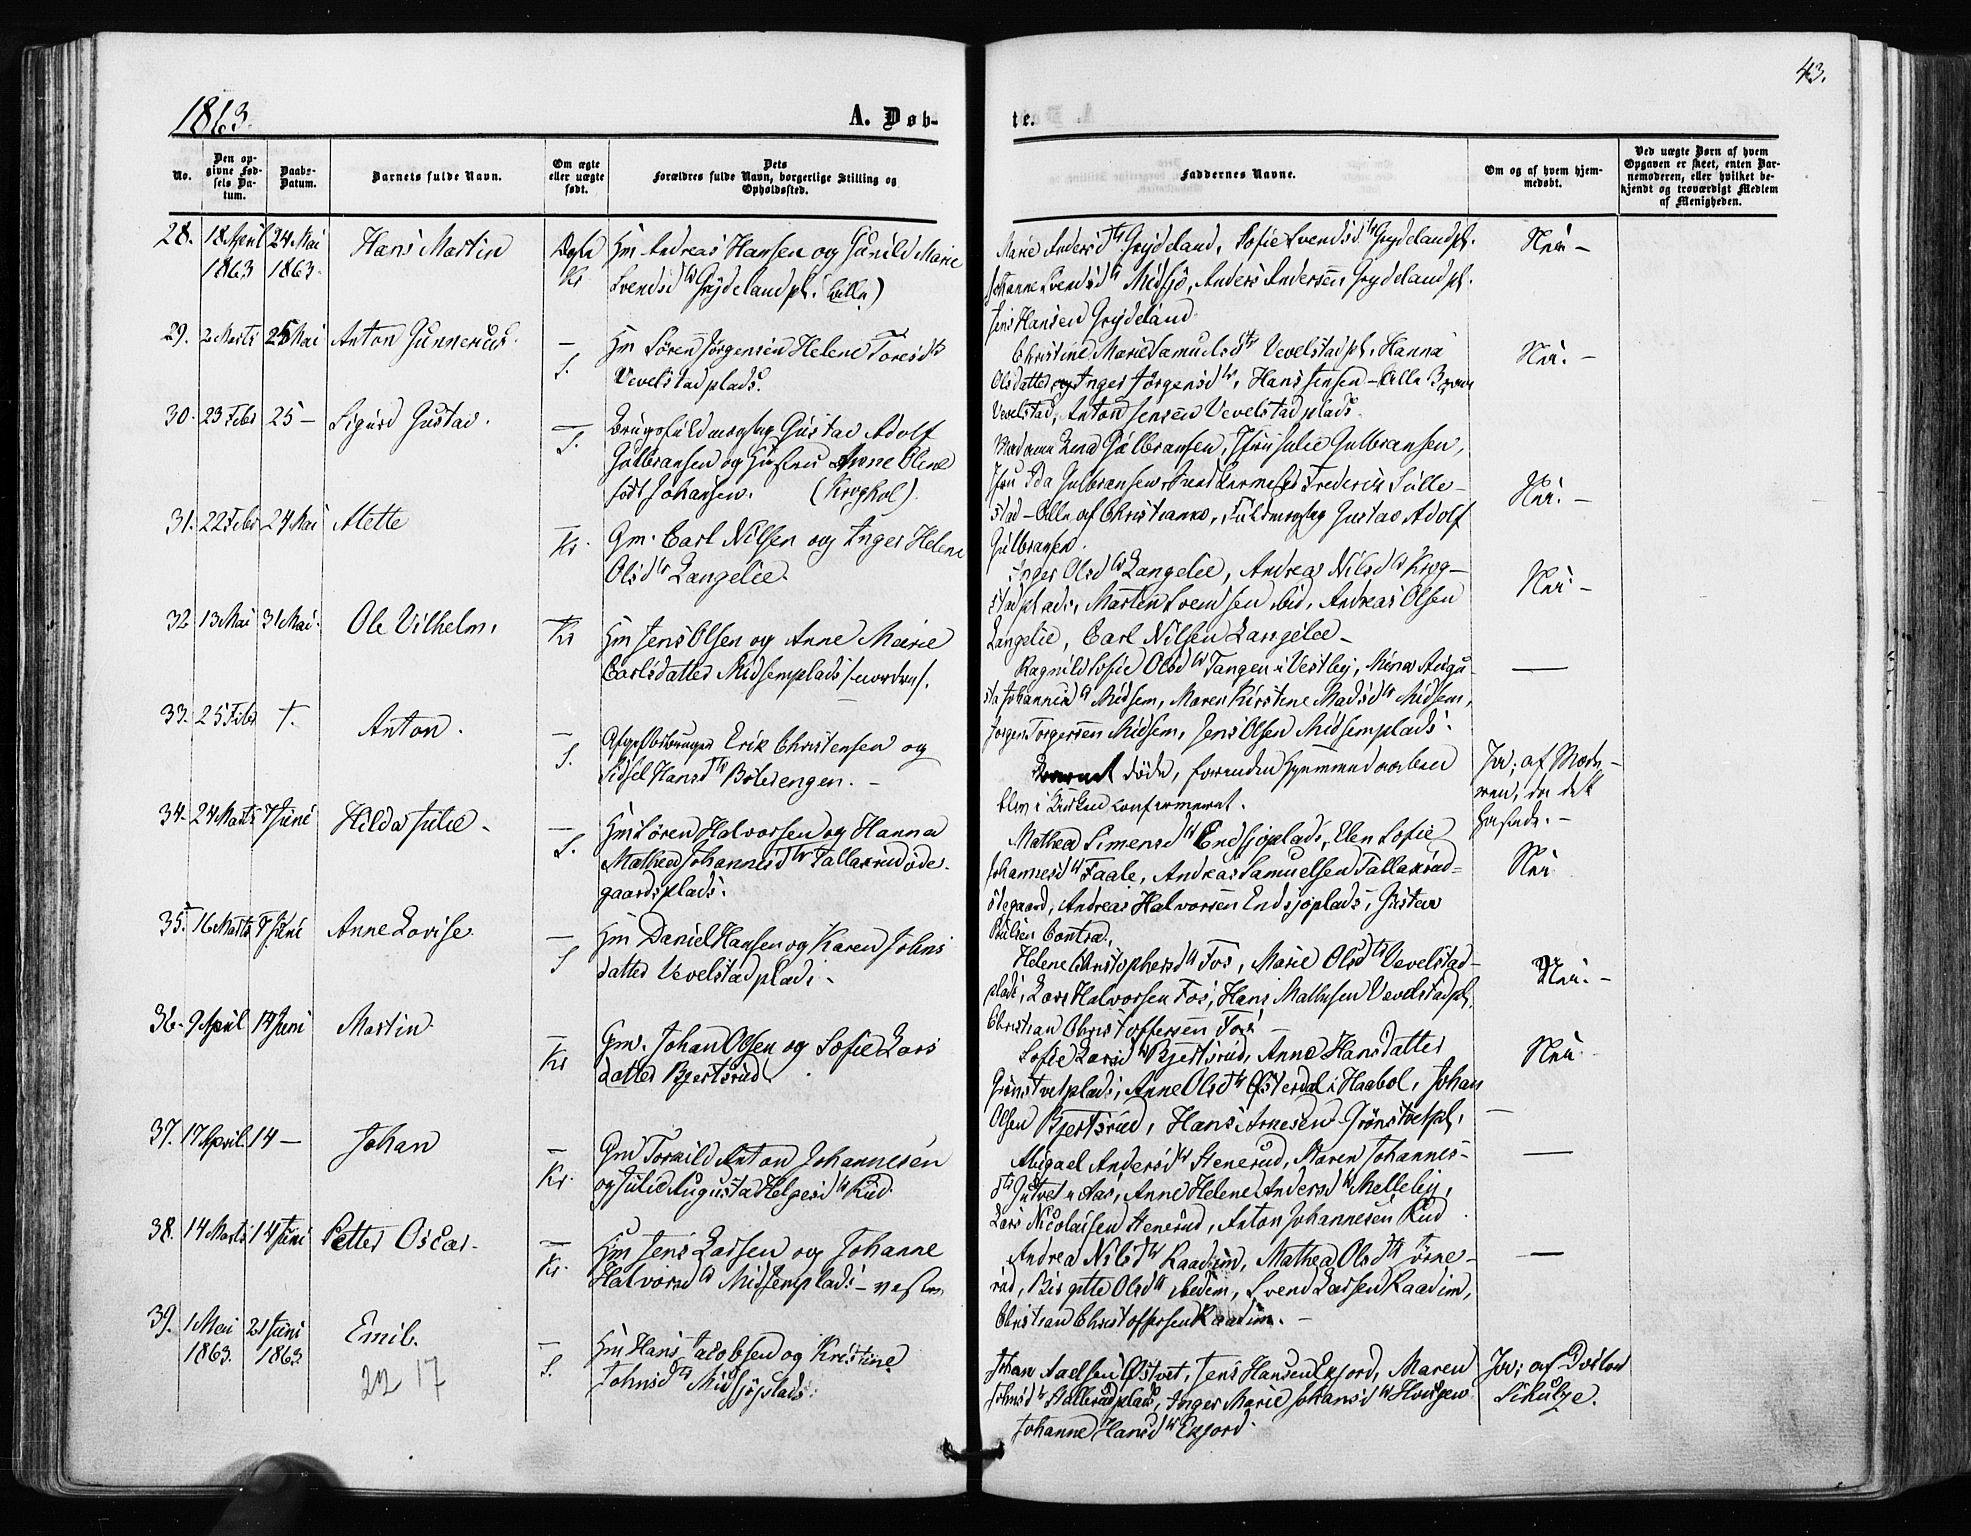 43.
1863.
A. Døb-
te.
No.
Den op-
givne Fød-
sels Da-
tum.
Daabs-
Datum.
Barnets fulde Navn.
Om ægte
eller uægte
født.
Dets
Forældres fulde Navn, borgerlige Stilling og
Opholdssted.
Faddernes Navne.
Om og af hvem hjem-
medøbt.
Ved uægte Børn af hvem
Opgaven er skeet, enten Bar-
nemoderen, eller hvilket be-
kjendt og troværdigt Medlem
af Menigheden.
28. 18 April 24 Mai Hans Martin Ægte Gm Andreas Hansen og Gunild Marie
1863 1863. Kr Svendsd tr Grydeland pl. (Lilla)
Marie Andersd tr Grydeland, Sofie Svendsd tr Grydelandpl.
Johanne Svendsd tr Midsjø, Anders Andersen Grydelandpl.
Jens Hansen Grydeland
Nei —
29. 2 Marts 25 Mai Anton Gunnerius — Gm Søren Jørgensen Helene Toresd tr
S. Vevelstadplads.
Christine Marie Samuelsd tr Vevelstadpl. Hanna
Olsdatter og Inger Jørgensd tr, Hans Jensen —
Vevelstad, Anton Jensen Vevelstadplads.
Nei. —
30. 23 Febr 25 — Sigurd Gustav. — Brugsfuldmægtig Gustav Adolf
S. Gulbransen og Hustru Anne Oline
født Johansen. (Kroghol).
Madame Lena Gulbransen, Jfru Julie Gulbransen,
Jfru Ida Gulbransen, Frederik Sølle-
stad — Alle af Christiania, Fuldmægtig Gustav Adolf
Gulbransen.
Nei. —
31. 22 Febr 24 Mai Mette — Gm. Carl Nilsen og Inger Helene
Kr. Olsd tr Langelie.
Inger Olsd tr Langelie, Andrea Nilsd tr Krog-
stadplads, Martin Svendsen ibid, Andreas Olsen
Langelie, Carl Nilsen Langelie —
Nei —
32 13 Mai 31 Mai. Ole Vilhelm. — Gm Jens Olsen og Anne Marie
Kr Carlsdatter Midsemplads /: nordre /.
Ragnild Sofie Olsd tr Tangen i Vestby, Mina Augu-
sta Johannesd tr Midsem, Maren Kirstine Madsd tr Midsem,
Jørgen Torgersen Midsem, Jens Olsen Midsemplads.
—
33. 25 Febr †. Anton. — Erik Christensen og
S. Sidsel Hansd tr Bølerengen. —
Barnet døde, forinden Hjemmedaaben
blev i Kirken confirmeret.
Jo; af Mode-
ren, da det
hastede. —
34. 24 Marts 7 Juni Hilda Julie — — Gm Søren Halvorsen og Hanna
S. Mathea Johannesd tr Tallaksrudøde-
gaardsplads.
Mathea Simensd tr Endsjøplads, Elen Sofie
Johannesd tr Faale, Andreas Samuelsen Tallaksrud-
ødegaard, Andreas Halvorsen Endsjøplads, Gustav
Poulsen Contra.
Nei
35. 16 Marts 7 Juni Anne Lovise. — Gm Daniel Hansen og Karen Johns
S datter Vevelstadplads —
Helene Christophersd tr Fos, Marie Olsd tr Vevelstad-
plads, Lars Halvorsen Fos, Hans Mathisen Vevelstadpl,
Christian Christoffersen Fos —
Nei. —
36. 9 April 14 Juni Martin — Gm. Johan Olsen og Sofie Lars
Kr datter Bjertsrud.
Sofie Larsd tr Bjertsrud, Anne Hansdatter
Grønstvetplads, Anne Olsd tr Østerdal i Haabøl, Johan
Olsen Bjertsrud, Hans Arnesen Grønstvetpl.
Nei
—
37. 17 April 14 — Johan — Gm Torkild Anton Johannesen
Kr. og Julie Augusta Helgesd tr Rud.
Abigael Andersd tr Stenerud, Karen Johannes-
d tr i Aas, Anne Helene Andersd tr Melleby,
Lars Nicolaisen Stenerud, Anton Johannesen Rud
—
38. 14 Marts 14 Juni Petter Oscar. — Gm Jens Larsen og Johanne
Kr. Halvorsd tr Midsemplads — vestre
Andrea Nilsd tr Kaadim, Mathea Olsd tr Tørne-
rud, Birgitte Olsd tr ibidem, Svend Larsen Kaadim,
Christian Christoffersen Kaadim. —
—
39. 1 Mai 21 Juni Emil. — Gm Hans Jacobsen og Kristine
1863. 1863 S. Johnsd tr Midsjøplads.
22 17
Johan Axelsen Østvet, Jens Hansen Exjord, Maren
Johnsd tr Hallerudplads, Inger Marie Johansd tr
Johanne Hansd tr Exjord.
Jo; af Doctor
Schulze.